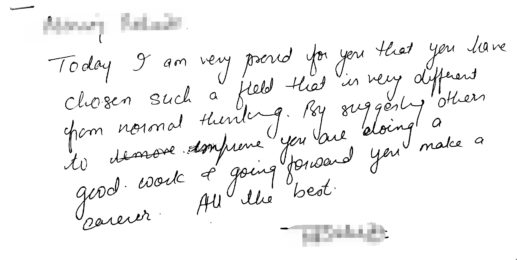 Today I am very proud for you that you have
chosen such a field that is very different
from normal thinking. By suggesting others
to improve you are doing a
good work & going forward you make a
career. All the best.